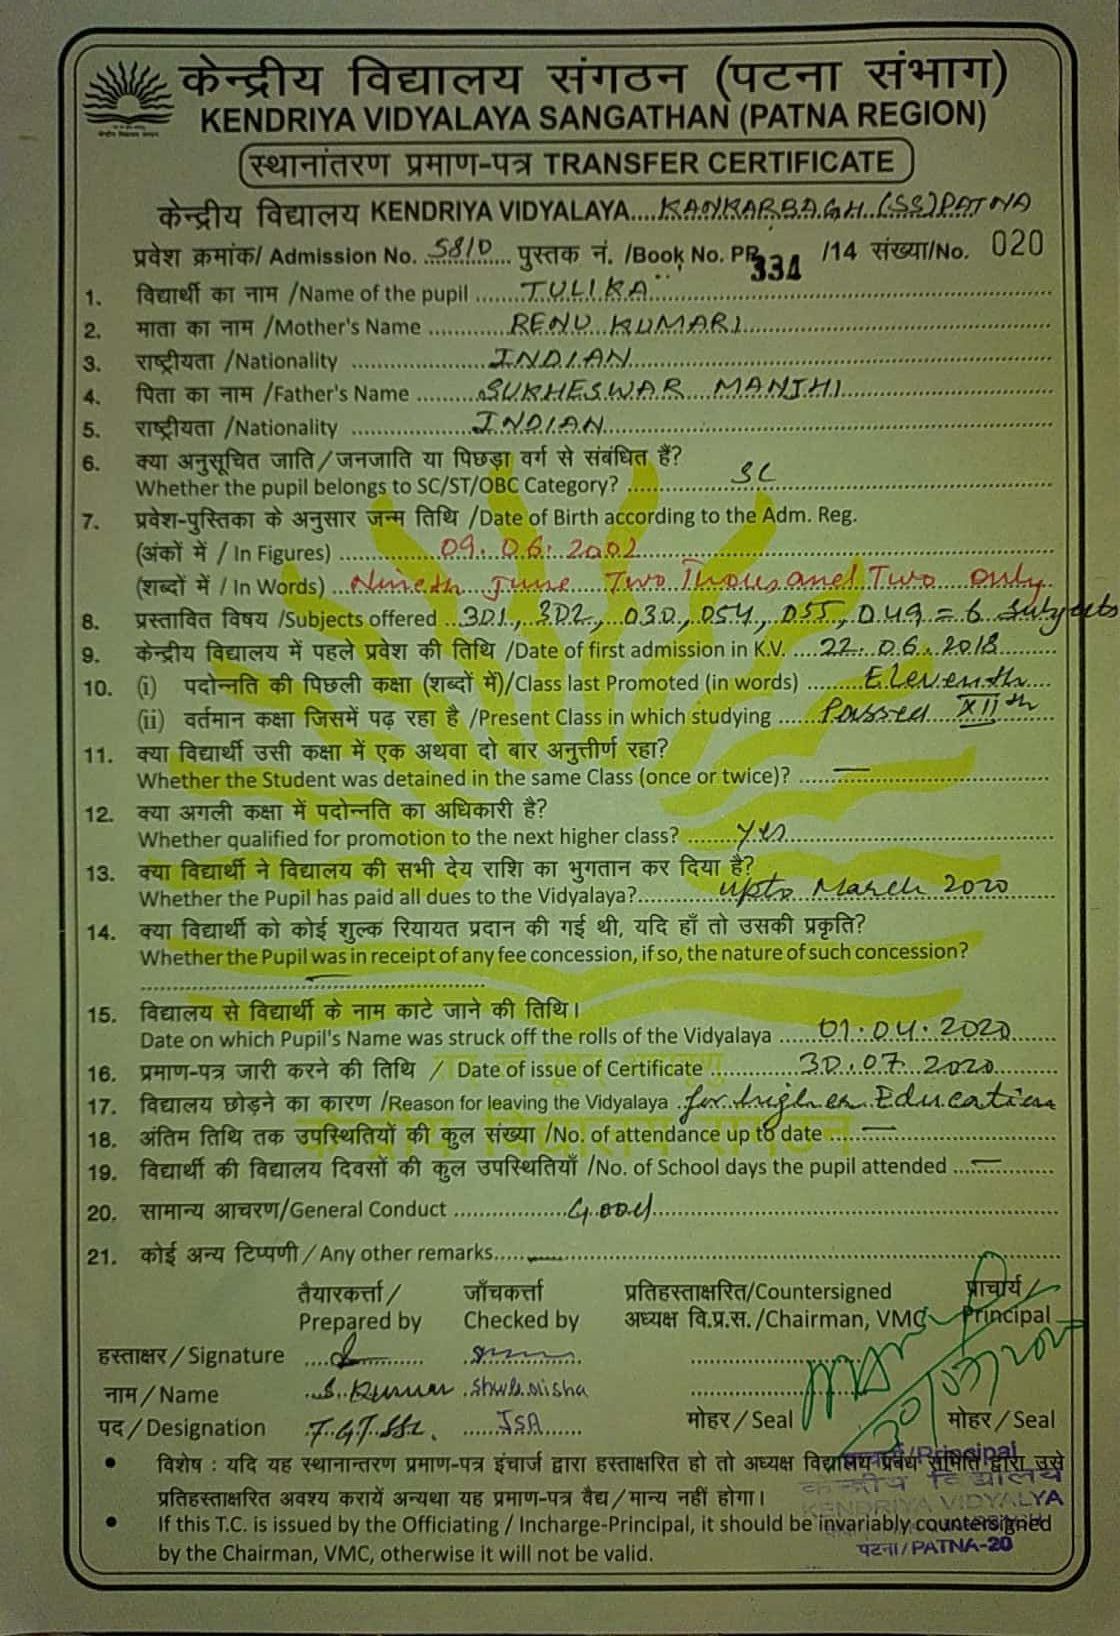 केन्द्रीय विद्यालय संगठन (पटना संभाग)
KENDRIYA VIDYALAYA SANGATHAN (PATNA REGION)
स्थानांतरण प्रमाण-पत्र TRANSFER CERTIFICATE
केन्द्रीय विद्यालय KENDRIYA VIDYALAYA....KANKARBAGH (SS) PATNA
प्रवेश क्रमांक/ Admission No. 5810 पुस्तक नं. /Book No. PR 334 /14 संख्या/No. 020
1. विद्यार्थी का नाम /Name of the pupil ........TULIKA
2. माता का नाम /Mother's Name ............RENU KUMARI
3. राष्ट्रीयता /Nationality ......................INDIAN
4. पिता का नाम /Father's Name ..........SUKHESWAR MANJHI
5. राष्ट्रीयता /Nationality ....................INDIAN
6. क्या अनुसूचित जाति/जनजाति या पिछड़ा वर्ग से संबंधित हैं?
Whether the pupil belongs to SC/ST/OBC Category? ..............SC
7. प्रवेश-पुस्तिका के अनुसार जन्म तिथि /Date of Birth according to the Adm. Reg.
(अंकों में / In Figures) ................09.06.2002
(शब्दों में / In Words) ..Nineth June Two Thousand Two only
8. प्रस्तावित विषय /Subjects offered ..301, 302, 030, 054, 055, 049 = 6 Subjects
9. केन्द्रीय विद्यालय में पहले प्रवेश की तिथि /Date of first admission in K.V. ....22.06.2018
10. (i) पदोन्नति की पिछली कक्षा (शब्दों में)/Class last Promoted (in words) .........Eleventh
(ii) वर्तमान कक्षा जिसमें पढ़ रहा है /Present Class in which studying ......Passed XIIth
11. क्या विद्यार्थी उसी कक्षा में एक अथवा दो बार अनुत्तीर्ण रहा?
Whether the Student was detained in the same Class (once or twice)? .....—
12. क्या अगली कक्षा में पदोन्नति का अधिकारी है?
Whether qualified for promotion to the next higher class? ........yes
13. क्या विद्यार्थी ने विद्यालय की सभी देय राशि का भुगतान कर दिया है?
Whether the Pupil has paid all dues to the Vidyalaya?..............upto March 2020
14. क्या विद्यार्थी को कोई शुल्क रियायत प्रदान की गई थी, यदि हाँ तो उसकी प्रकृति?
Whether the Pupil was in receipt of any fee concession, if so, the nature of such concession?
—
15. विद्यालय से विद्यार्थी के नाम काटे जाने की तिथि।
Date on which Pupil's Name was struck off the rolls of the Vidyalaya ......01.04.2020
16. प्रमाण-पत्र जारी करने की तिथि / Date of issue of Certificate ..............30.07.2020
17. विद्यालय छोड़ने का कारण /Reason for leaving the Vidyalaya .for higher Education
18. अंतिम तिथि तक उपस्थितियों की कुल संख्या /No. of attendance up to date ....—
19. विद्यार्थी की विद्यालय दिवसों की कुल उपस्थितियाँ /No. of School days the pupil attended ...—
20. सामान्य आचरण/General Conduct ..................Good
21. कोई अन्य टिप्पणी / Any other remarks.....—
तैयारकर्त्ता / जाँचकर्त्ता प्रतिहस्ताक्षरित/Countersigned प्राचार्य /
Prepared by Checked by अध्यक्ष वि.प्र.स. /Chairman, VMC Principal
हस्ताक्षर / Signature
नाम / Name S. Kumar
पद / Designation T.G.T. SSt. JSA मोहर / Seal मोहर / Seal
30/07/2020
• विशेष : यदि यह स्थानान्तरण प्रमाण-पत्र इंचार्ज द्वारा हस्ताक्षरित हो तो अध्यक्ष विद्यालय प्रबंध समिति द्वारा उसे
प्रतिहस्ताक्षरित अवश्य करायें अन्यथा यह प्रमाण-पत्र वैद्य/मान्य नहीं होगा।
• If this T.C. is issued by the Officiating / Incharge-Principal, it should be invariably countersigned
by the Chairman, VMC, otherwise it will not be valid.
प्राचार्य/Principal
केन्द्रीय विद्यालय
KENDRIYA VIDYALYA
पटना/PATNA-20